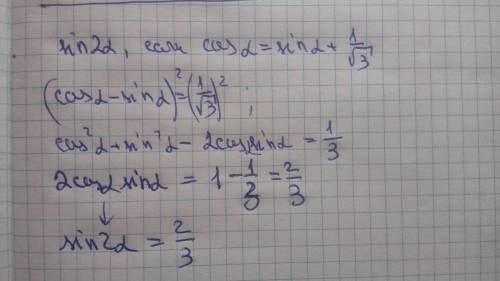 sin2α, если cosα = sinα + 1/√3
(cosα - sinα)² = (1/√3)² ;
cos²α + sin²α - 2cosα sinα = 1/3
2cosα sinα = 1 - 1/3 = 2/3
↓
sin2α = 2/3